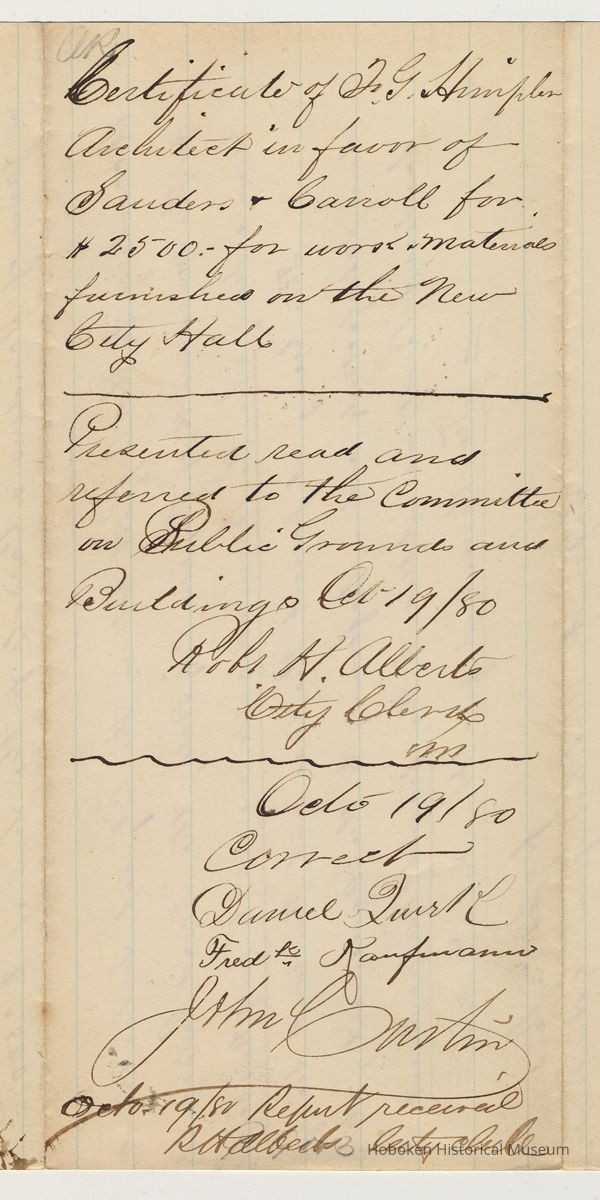 Certificate of F. G. Himpler
Architect in favor of
Sanders & Carroll for
$2500.- for work & materials
furnished on the New
City Hall
Presented read and
referred to the Committee
on Public Grounds and
Buildings Oct 19/80
Robt H. Alberts
City Clerk
Octo 19/80
Correct
Daniel Quirk
Fredk Kaufmann
John Curtin
Octo. 19/80 Report received
R H Alberts City Clerk
Hoboken Historical Museum